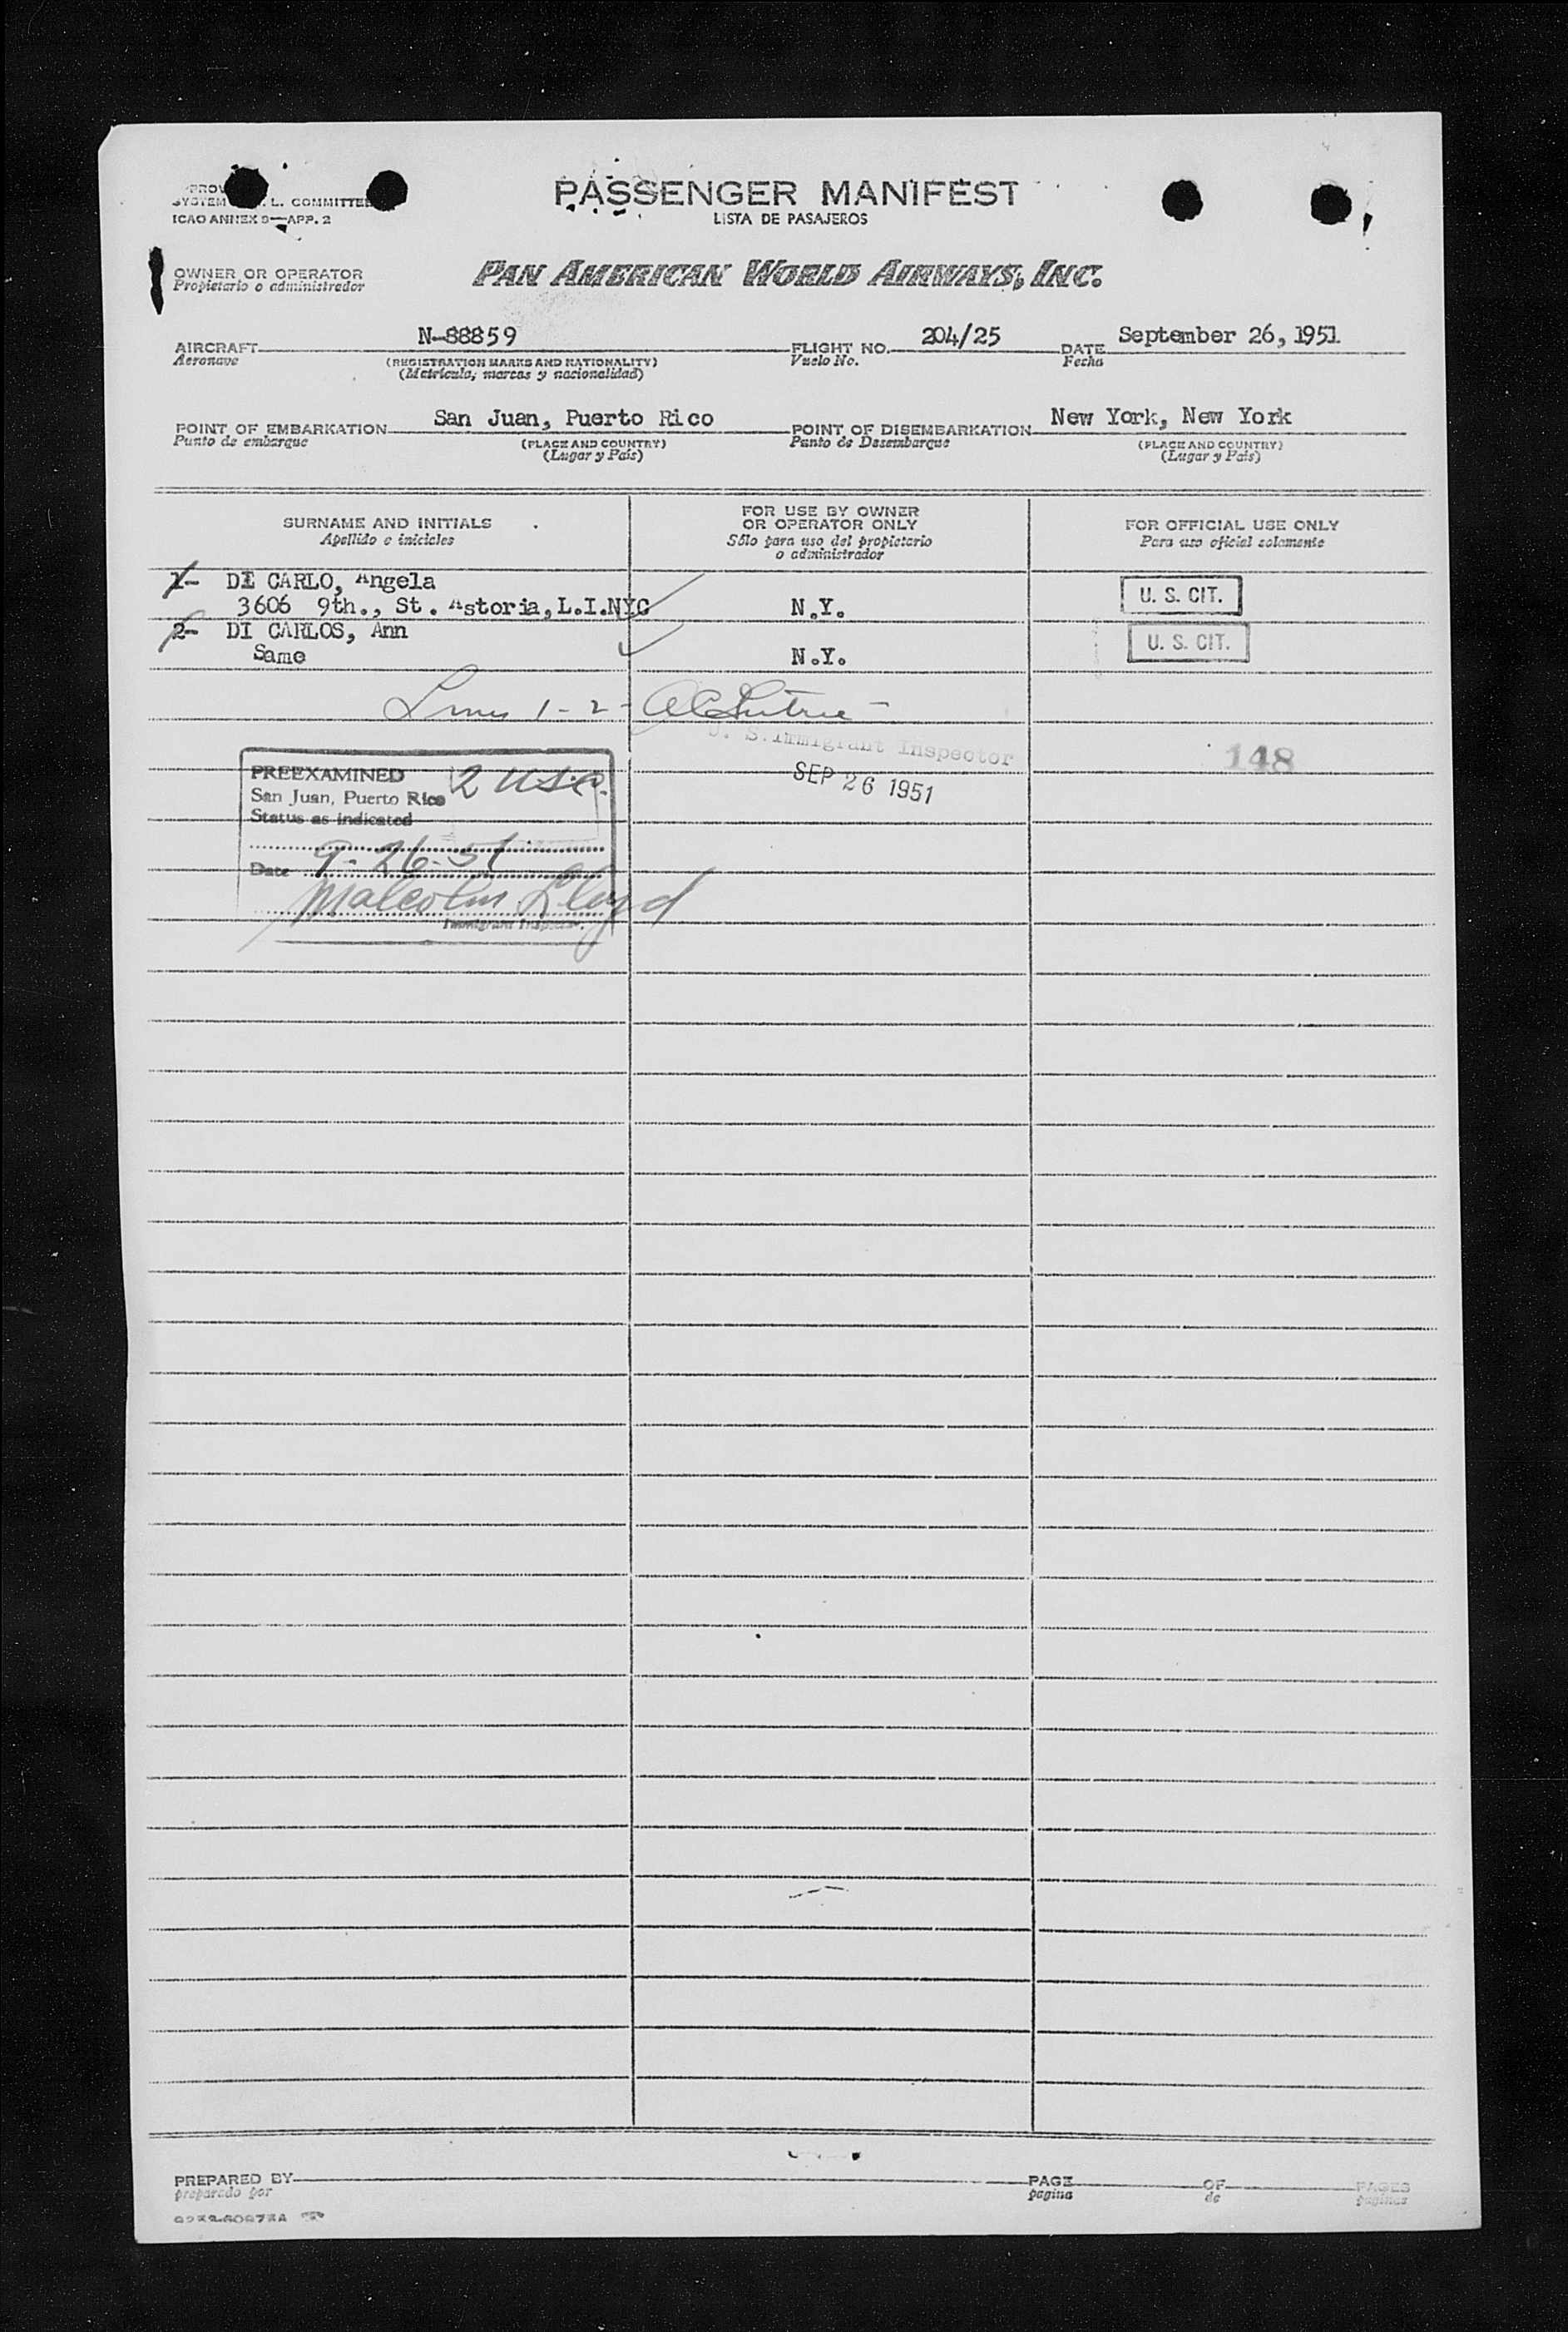 PASSENGER MANIFEST
LISTA DE PASAJEROS
SYSTEM L. COMMITTEE
ICAO ANNEX 9—APP. 2
OWNER OR OPERATOR
Propietario o administrador
PAN AMERICAN WORLD AIRWAYS, INC.
AIRCRAFT N-88859 FLIGHT NO. 204/25 DATE September 26, 1951
Aeronave (REGISTRATION MARKS AND NATIONALITY) Vuelo No. Fecha
(Matricula, marcas y nacionalidad)
POINT OF EMBARKATION San Juan, Puerto Rico POINT OF DISEMBARKATION New York, New York
Punto de embarque (PLACE AND COUNTRY) Punto de Desembarque (PLACE AND COUNTRY)
(Lugar y País) (Lugar y País)
SURNAME AND INITIALS
Apellido e iniciales
FOR USE BY OWNER
OR OPERATOR ONLY
Sólo para uso del propietario
o administrador
FOR OFFICIAL USE ONLY
Para uso oficial solamente
1- DI CARLO, Angela
3606 9th., St. Astoria, L.I.NYC N.Y. U. S. CIT.
2- DI CARLOS, Ann
Same N.Y. U. S. CIT.
1-2-
U. S. Immigrant Inspector
SEP 26 1951
148
PREEXAMINED 2 USC.
San Juan, Puerto Rico
Status as indicated
Date 9-26-51
Malcolm Lloyd
Immigrant Inspector.
PREPARED BY PAGE OF PAGES
preparado por pagina de paginas